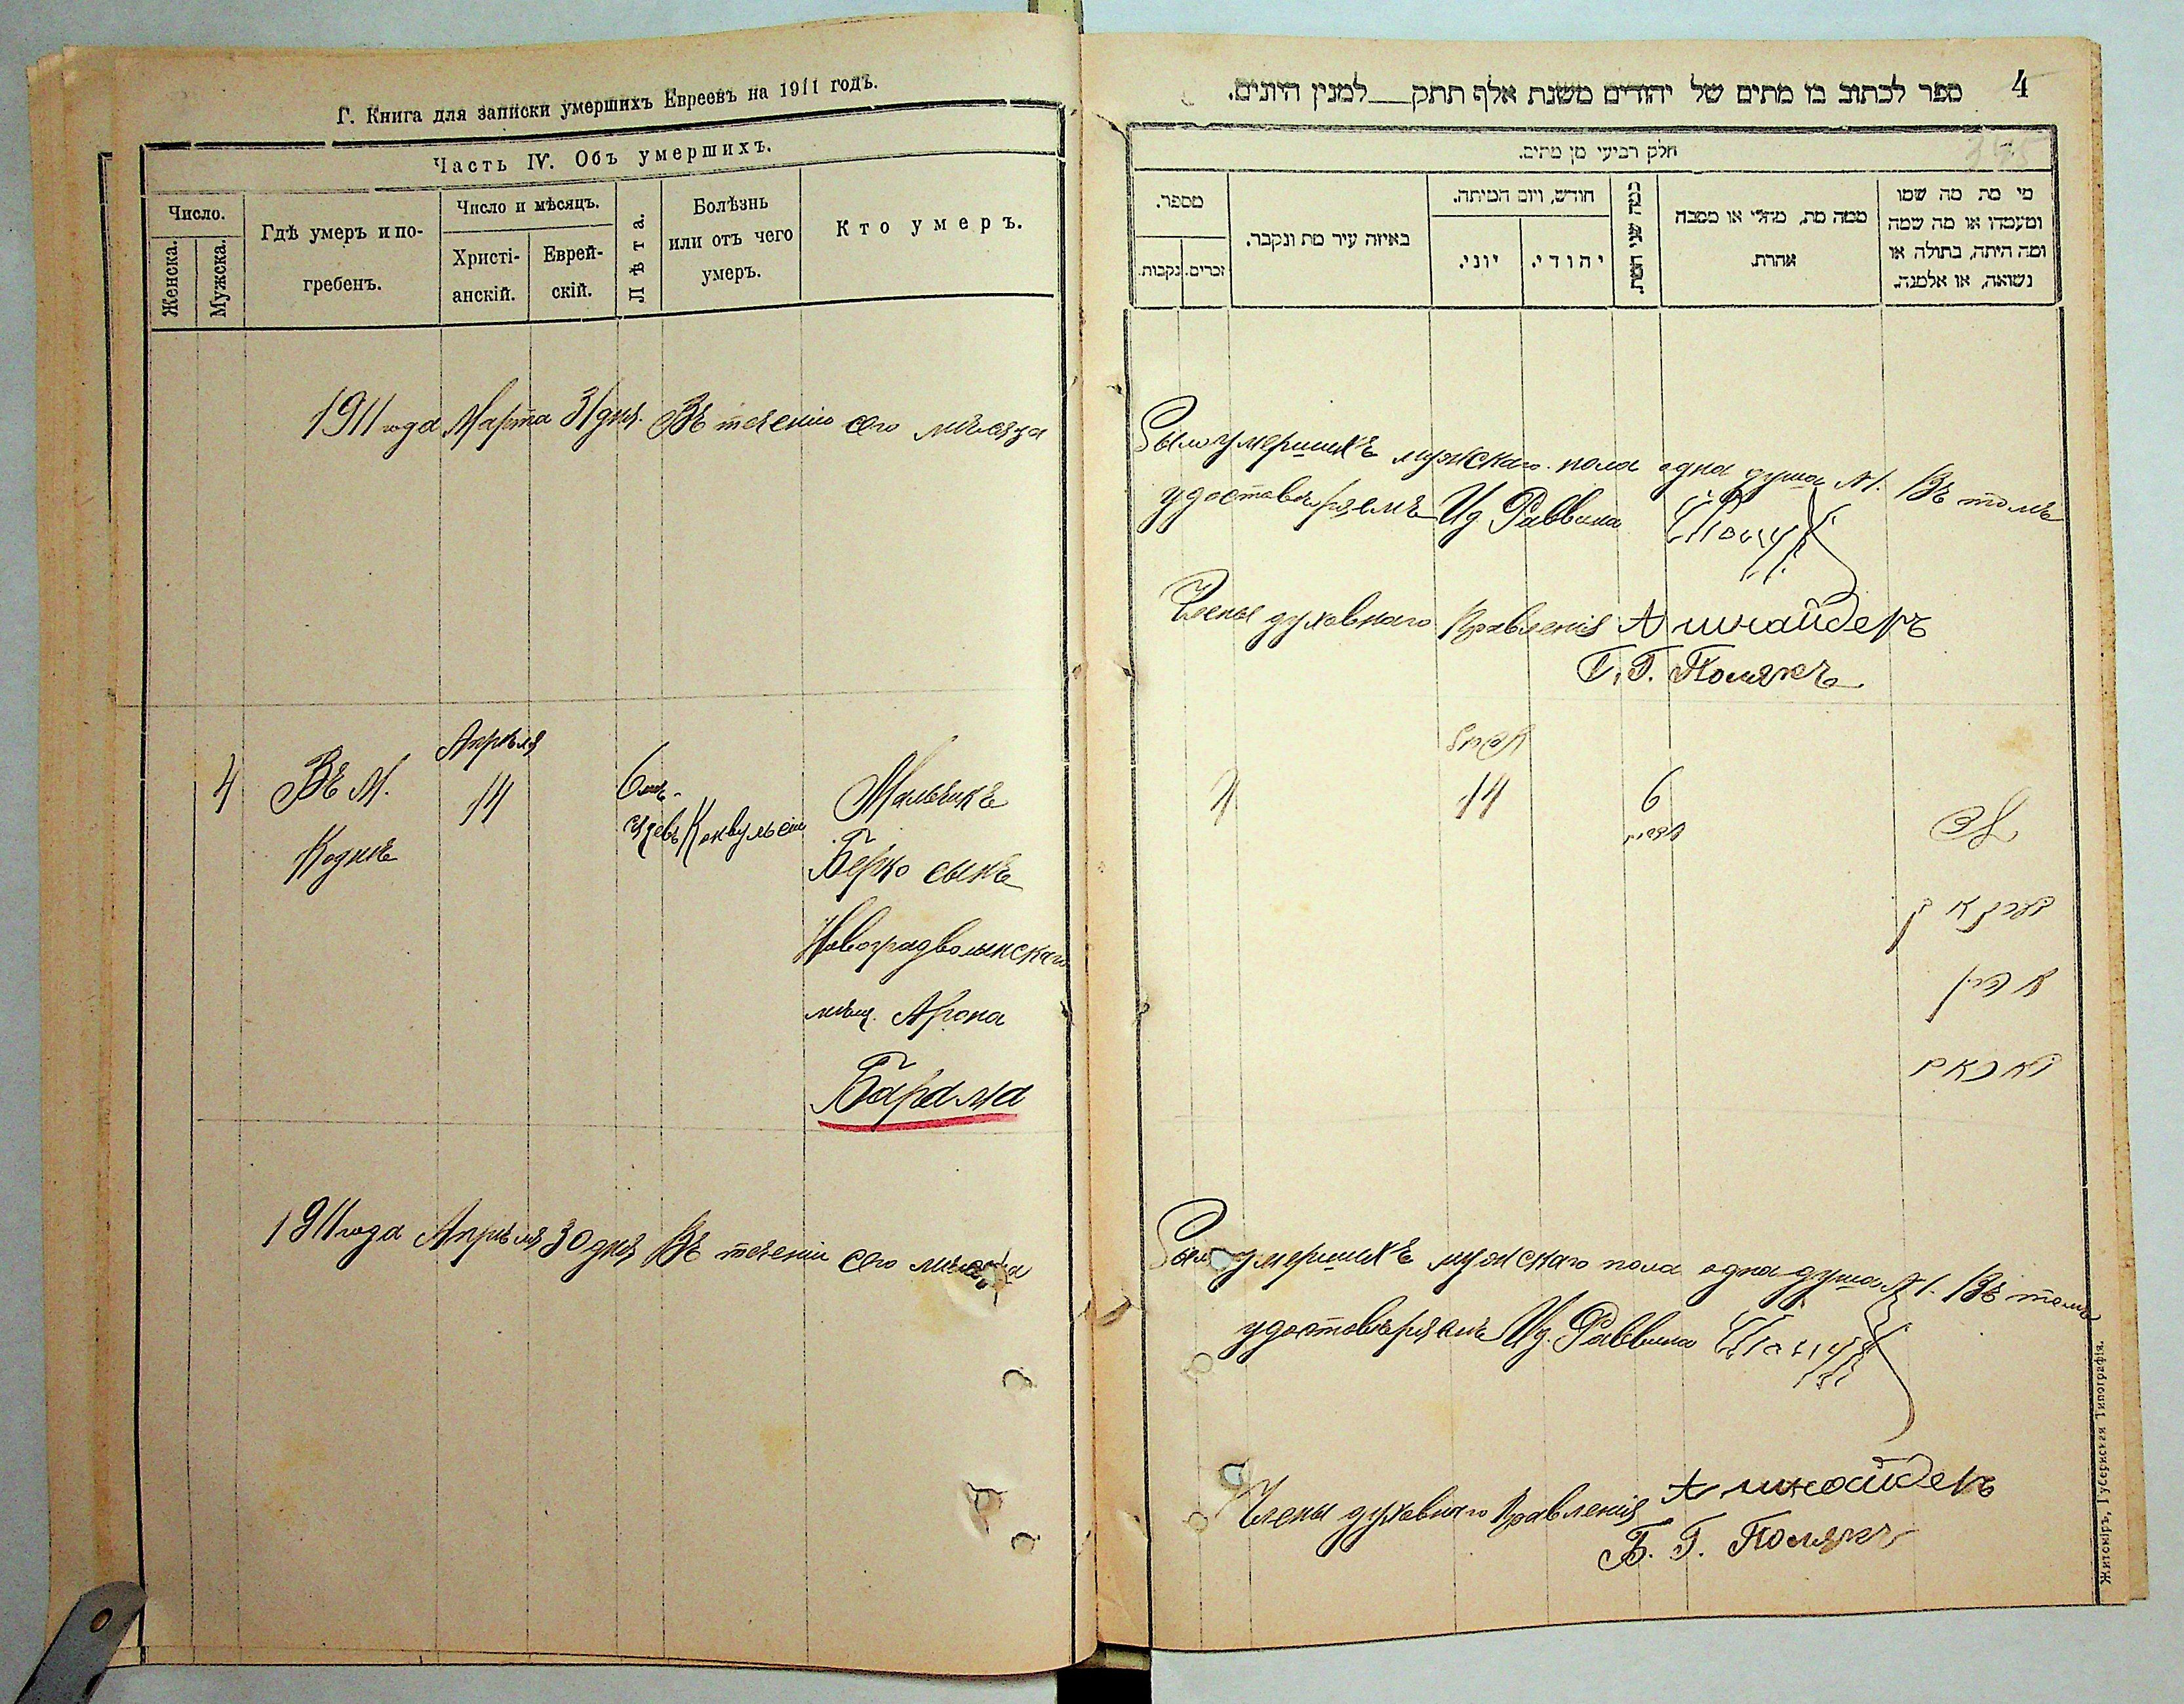 Г. Книга для записки умершихъ Евреевъ на 1911 годъ.
Часть IV. Объ умершихъ.
Число.
Женска.
Мужска.
Гдѣ умеръ и по-
гребенъ.
Число и мѣсяцъ.
Христі-
анскій.
Еврей-
скій.
Лѣта.
Болѣзнь
или отъ чего
умеръ.
Кто умеръ.
1911 года Марта 31 дня. Въ теченіи сего мѣсяца
4
Въ м.
Кодне
Апрѣля
14
6 мѣ-
сяцевъ
Конвульсіи
Мальчикъ
Берко сынъ
Новоградволынскаго
мѣщ. Арона
Барама
1911 года Апрѣля 30 дня Въ теченіи сего мѣсяца
ספר לכתוב בו מתים של יהודים משנת אלף תתק___למנין היונים.
4
חלק רביעי מן מתים.
מספר.
נקבות.
זכרים.
באיזה עיר מת ונקבר.
חודש, ויום המיתה.
יוני.
יהודי.
כמה שני המת.
ממה מת, מחלי או מסבה
אחרת.
מי מת מה שמו
ומעמדו או מה שמה
ומה היתה, בתולה או
נשואה, או אלמנה.
Было умершихъ мужскаго пола одна душа №1. Въ томъ
удостовѣряемъ Ид. Раввина
Члены духовнаго Правленія А Шнайдеръ
Б. Г. Полякъ
4
14
6
Было умершихъ мужскаго пола одна душа №1. Въ томъ
удостовѣряемъ Ид. Раввина
Члены духовнаго Правленія А Шнайдеръ
Б. Г. Полякъ
Житоміръ, Губернская Типографія.